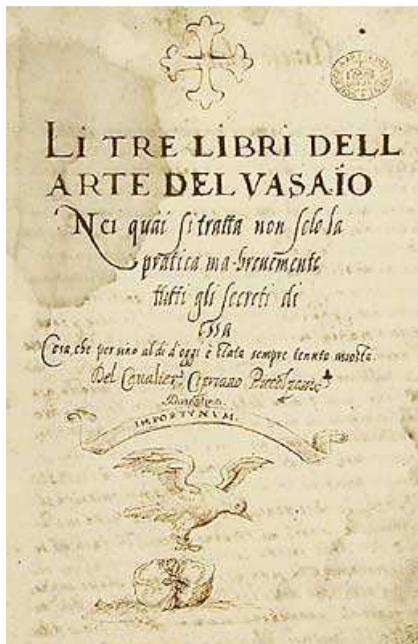 LI TRE LIBRI DELL
ARTE DEL VASAIO
Nei quai si tratta non solo la
pratica ma brevemente
tutti gli secreti di
essa
Cosa, che per sino al di d'oggi è stata sempre tenuta
Del Cavalier Cipriano
IMPORTVNVM.